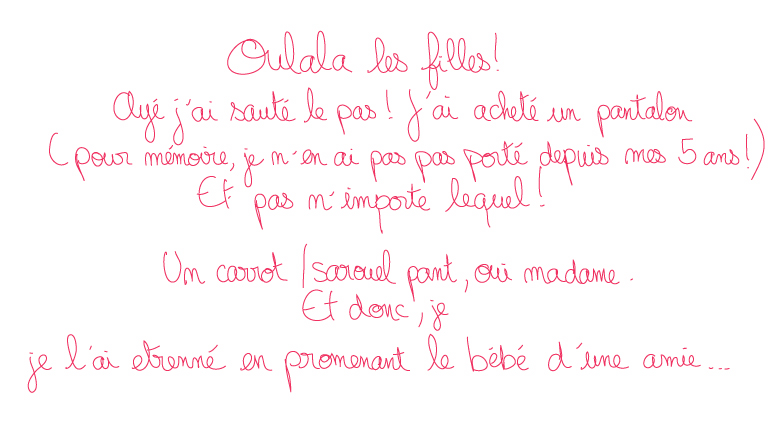 Oulala les filles!
Ayé j'ai sauté le pas! J'ai acheté un pantalon
(pour mémoire, je n'en ai pas pas porté depuis mes 5 ans!)
Et pas n'importe lequel!
Un carrot /sarouel pant, oui madame.
Et donc, je
je l'ai etrenné en promenant le bébé d'une amie...